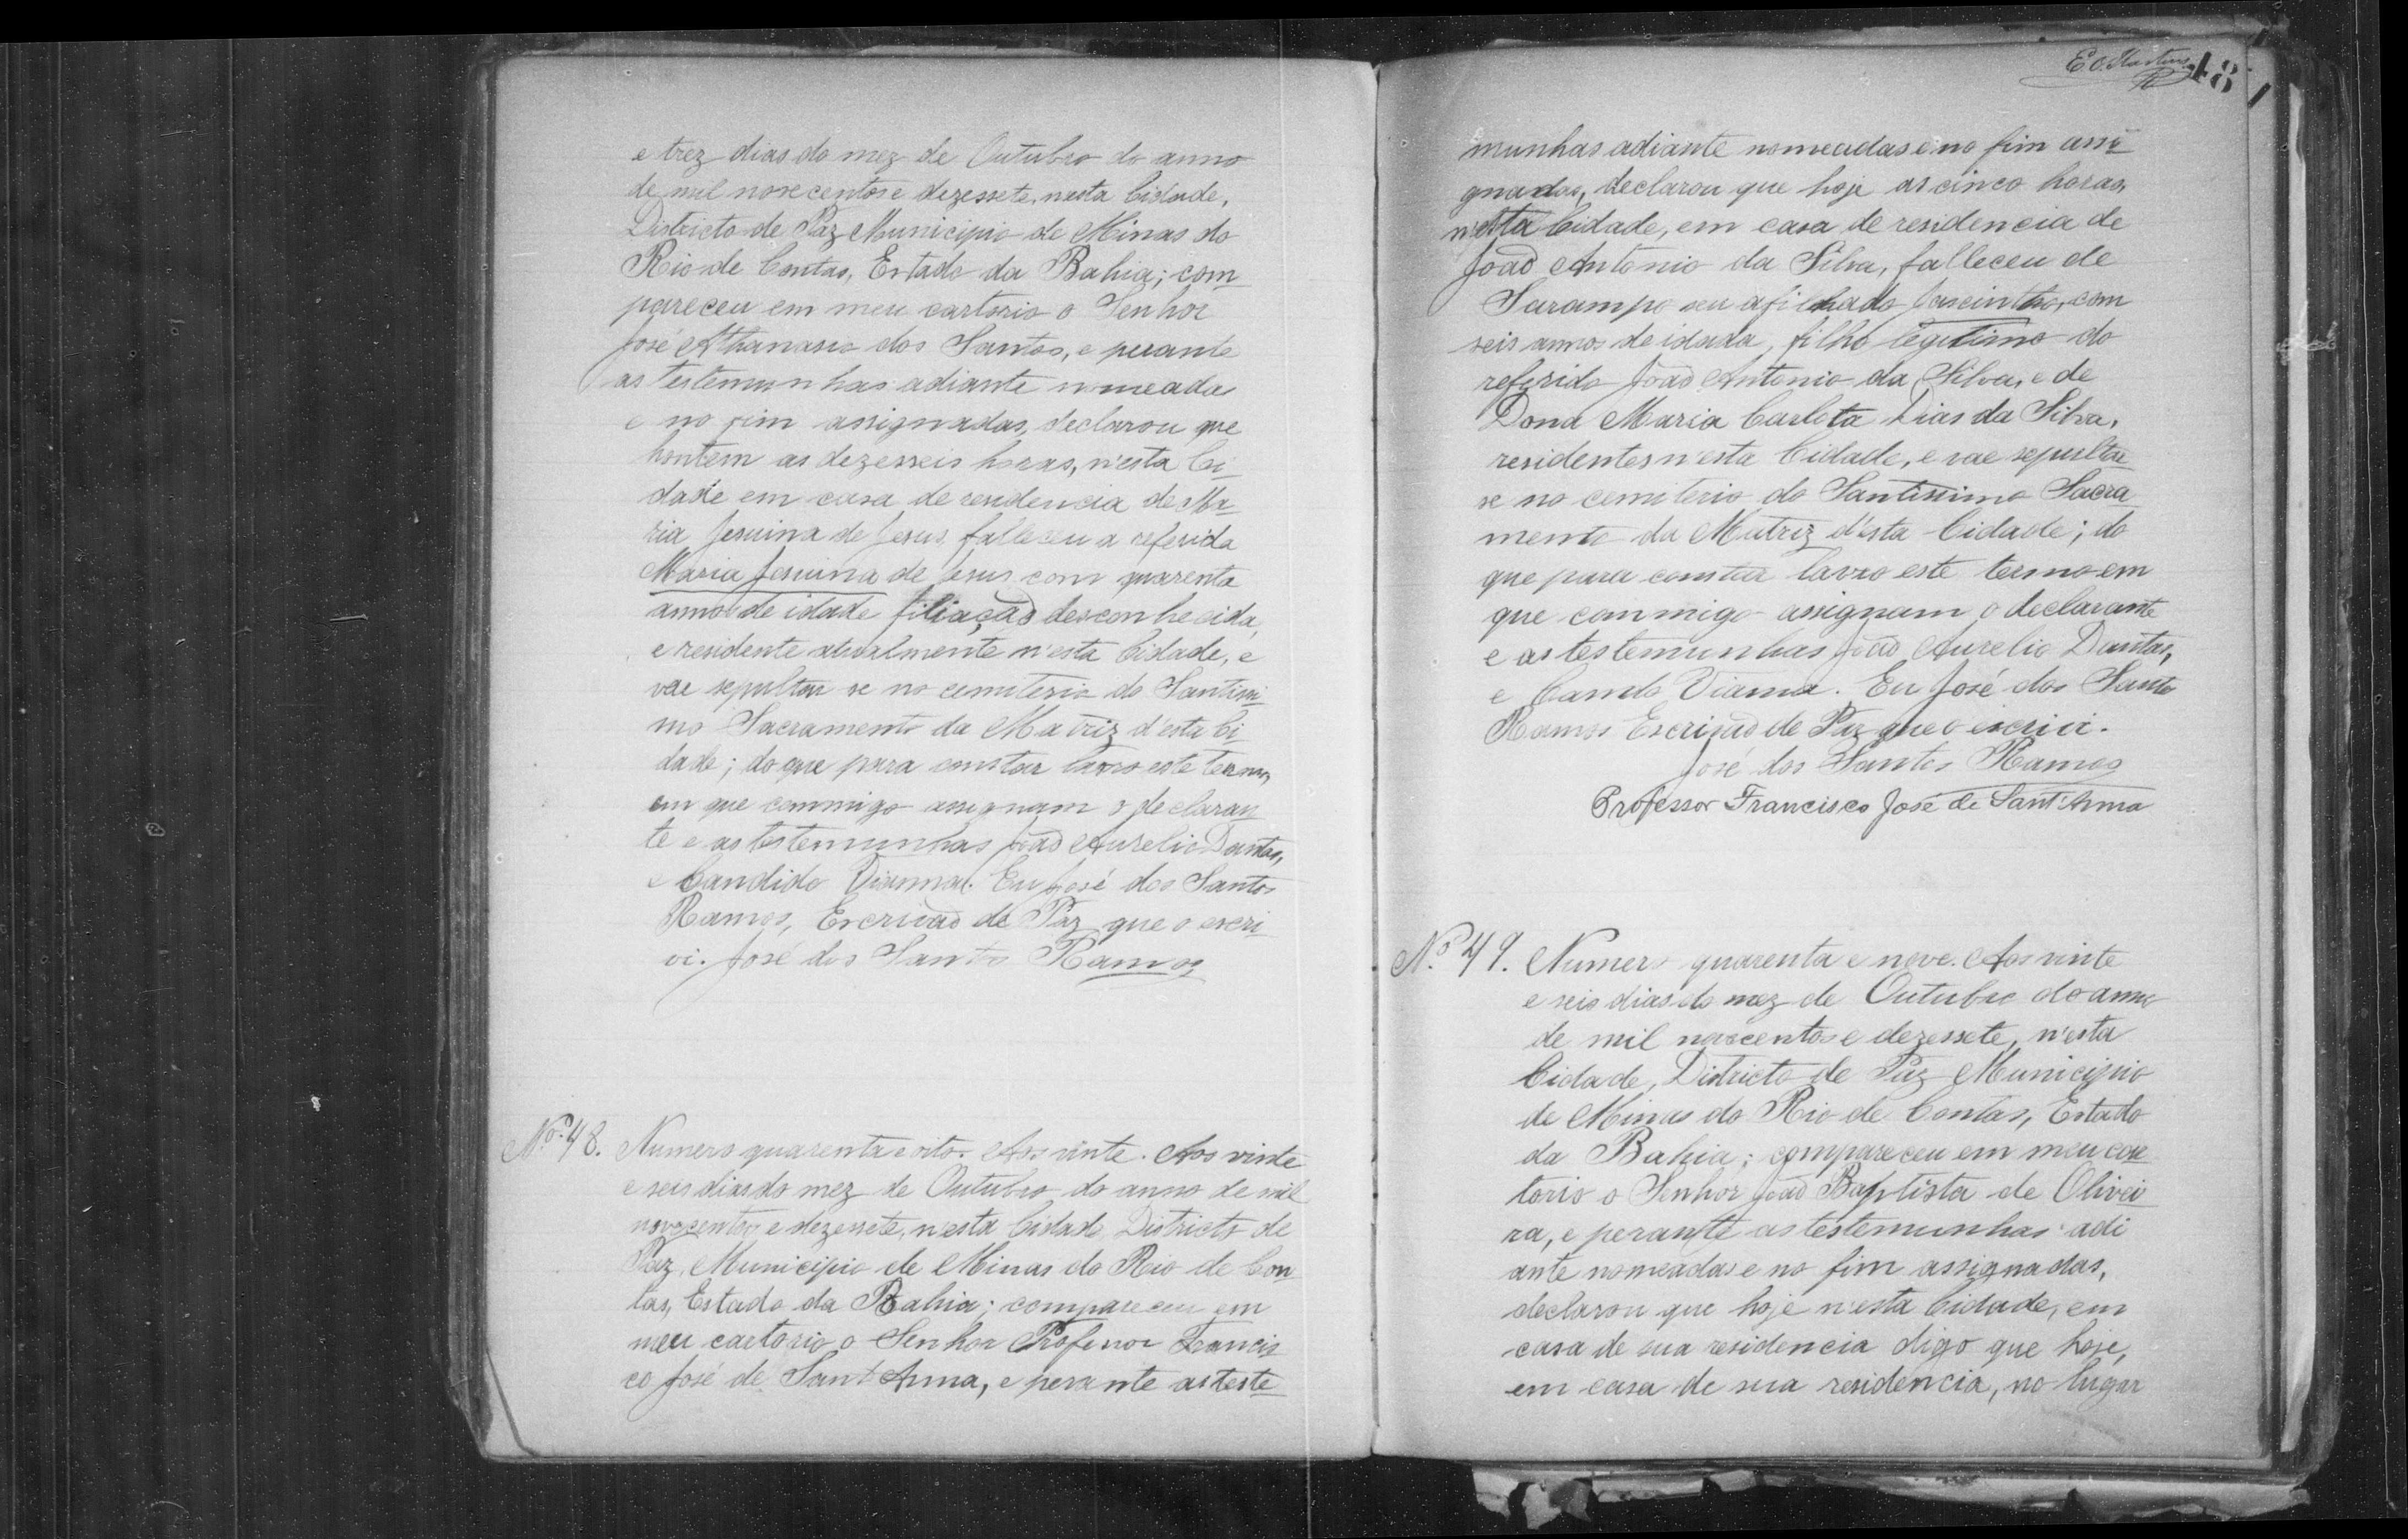 e trez dias do mez de Outubro do anno
de mil novecentos e dezessete, nesta Cidade,
Districto de Paz Municipio de Minas do
Rio de Contas, Estado da Bahia; com
pareceu em meu cartorio o Senhor
José Athanasio dos Santos, e perante
as testemunhas adiante nomeadas
e no fim assignadas, declarou que
hontem as dezesseis horas, n'esta Ci
dade em casa de residencia de Ma
ria Jesuina de Jesus, falleceu a referida
Maria Jesuina de Jesus com quarenta
annos de idade filiação desconhecida,
e residente atualmente n'esta Cidade, e
vae sepultar se no cemiterio do Santissi
mo Sacramento da Matriz d'esta Ci
dade; do que para constar lavro este termo,
em que commigo assignam o declaran
te e as testemunhas João Aurelio Dantas,
e Candido Vianna. Eu José dos Santos
Ramos, Escrivão de Paz que o escri
vi. José dos Santos Ramos
Nº 48. Numero quarenta e oito. Aos vinte. Aos vinte
e seis dias do mez de Outubro do anno de mil
novecentos e dezessete, n'esta Cidade Districto de
Paz, Municipio de Minas do Rio de Con
tas, Estado da Bahia; compareceu em
meu cartorio o Senhor Professor Francis
co José de Sant'Anna, e perante as teste
E. O. Martins
48
munhas adiante nomeadas e no fim assi
gnadas, declarou que hoje as cinco horas,
n'esta Cidade, em casa de residencia de
João Antonio da Silva, falleceu de
Sarampo seu afilhado Jascintho, com
seis annos de idade, filho legitimo do
referido João Antonio da Silva, e de
Dona Maria Carlota Dias da Silva,
residentes n'esta Cidade, e vae sepultar
se no cemiterio do Santissimo Sacra
mento da Matriz d'esta Cidade; do
que para constar lavro este termo em
que commigo assignam o declarante
e as testemunhas João Aurelio Dantas,
e Vianna. Eu José dos Santos
Ramos Escrivão de Paz que o escrivi.
José dos Santos Ramos
Professor Francisco José de Sant'Anna
Nº 49. Numero quarenta e nove. Aos vinte
e seis dias do mez de Outubro do anno
de mil novecentos e dezessete, n'esta
Cidade, Districto de Paz Municipio
de Minas do Rio de Contas, Estado
da Bahia; compareceu em meu car
torio o Senhor João Baptista de Olivei
ra, e perante as testemunhas adi
ante nomeadas e no fim assignadas,
declarou que hoje n'esta Cidade, em
casa de sua residencia digo que hoje,
em casa de sua residencia, no lugar